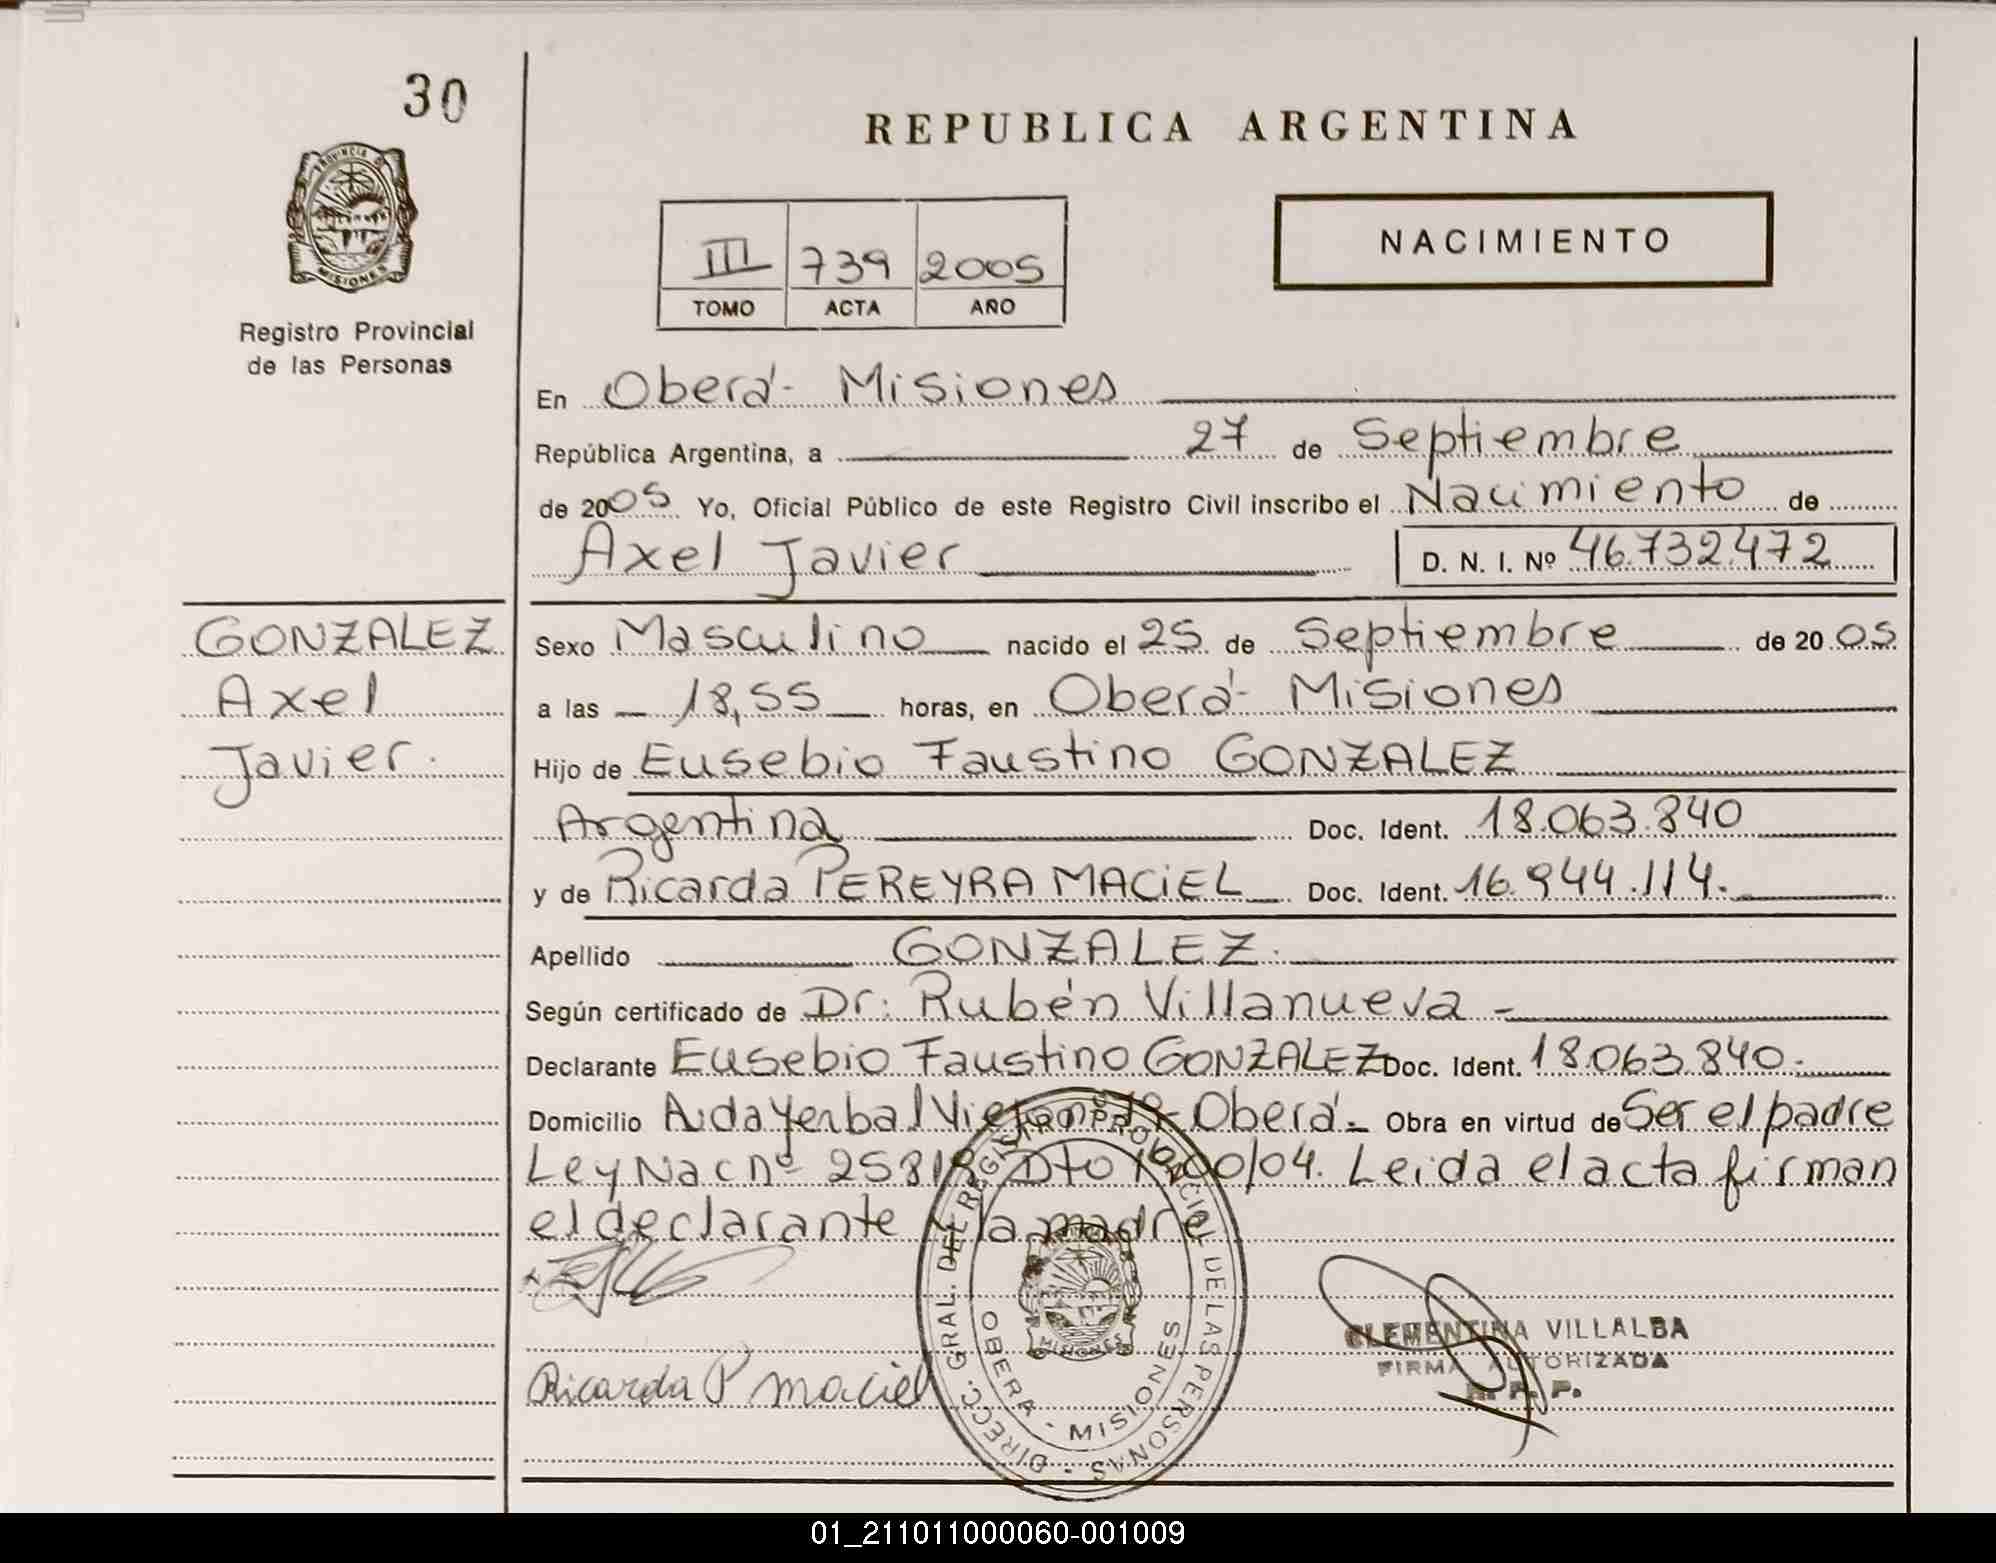 30
REPUBLICA ARGENTINA
PROVINCIA DE
MISIONES
Registro Provincial
de las Personas
III 739 2005
TOMO ACTA AÑO
NACIMIENTO
En Oberá - Misiones
República Argentina, a 27 de Septiembre
de 2005 Yo, Oficial Público de este Registro Civil inscribo el Nacimiento de
Axel Javier D. N. I. Nº 46.732.472
GONZALEZ
Axel
Javier.
Sexo Masculino nacido el 25 de Septiembre de 2005
a las 18,55 horas, en Oberá - Misiones
Hijo de Eusebio Faustino GONZALEZ
Argentina Doc. Ident. 18.063.840
y de Ricarda PEREYRA MACIEL Doc. Ident. 16.944.114.
Apellido GONZALEZ.
Según certificado de Dr: Rubén Villanueva -
Declarante Eusebio Faustino GONZALEZ Doc. Ident. 18.063.840.
Domicilio Yerbal Viejo Oberá. Obra en virtud de Ser el padre
Ley Nac nº 25819 Dto /04. Leida el acta firman
el declarante y la madre
Ricarda P maciel
DIRECC. GRAL. DEL REGISTRO PROVINCIAL DE LAS PERSONAS
OBERA - MISIONES
MISIONES
CLEMENTINA VILLALBA
FIRMA AUTORIZADA
R. P. P.
01_211011000060-001009